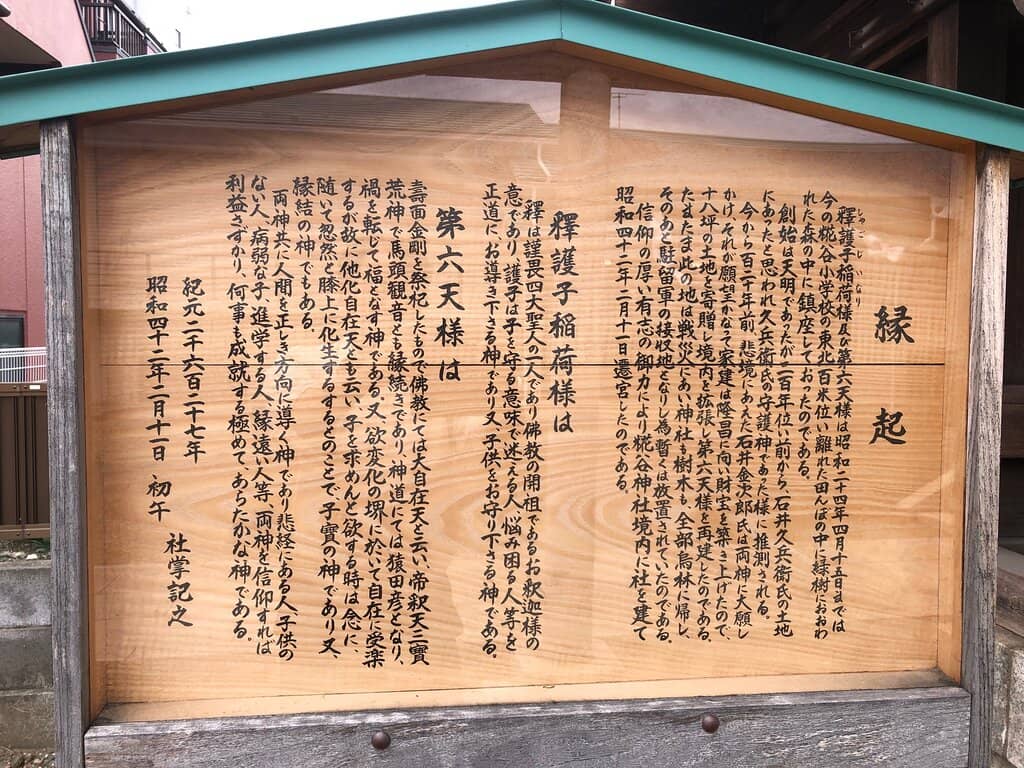 縁起
釋護子稲荷様及び第六天様は昭和二十四年四月十五日までは
しゃごじいなり
今の糀谷小学校の東北二百米位い離れた田んぼの中に緑樹におおわ
れた森の中に鎮座しておったのである。
創始は天明であったが二百年位い前から、石井久兵衛氏の土地
にあったと思われ久兵衛氏の守護神であった様に推測される。
今から百二十年前、悲境にあえた石井金次郎氏は両神に大願し
かけ、それが願望かなって家運は隆昌に向い財宝を築き上げたので、
十八坪の土地を寄贈し境内を拡張、第六天様を再建したのである。
たまたま此の地は戦火にあい神社も樹木も、全部烏林に帰し、
そのあと駐留軍の接収地となりし為暫くは放置されていたのである。
信仰の厚い有志の御力により糀谷神社境内に社を建て
昭和四十二年二月十一日遷宮したのである。
釋護子稲荷様は
釋は謹長四大聖人の一人であり佛教の開祖であるお釈迦様の
意であり、護子は子を守る意味で迷える人、悩み困る人等を
正道に、お導き下さる神であり又、子供をお守り下さる神である。
第六天様は
壽面金剛と祭祀したもので佛教にては大自在天と云い、帝釈天三寶
荒神で馬頭観音とも縁続きであり、神道にては猿田彦となり、
禍を転じて福となす神である。又、欲変化の堺に於いて自在に受楽
するが故に他化自在天とも云い、子を求めんと欲する時は念に、
随いて忽然と膝上に化生するするとのことで、子寶の神であり又、
縁結の神でもある。
両神共に人間を正しき方向に導く神であり悲経にある人、子供の
ない人、病弱な子、進学する人、縁遠い人等、両神を信仰すれば
利益さずかり、何事も成就する極めて、あらたかな神である。
紀元二千六百二十七年
昭和四十二年二月十一日 初午
社掌記之